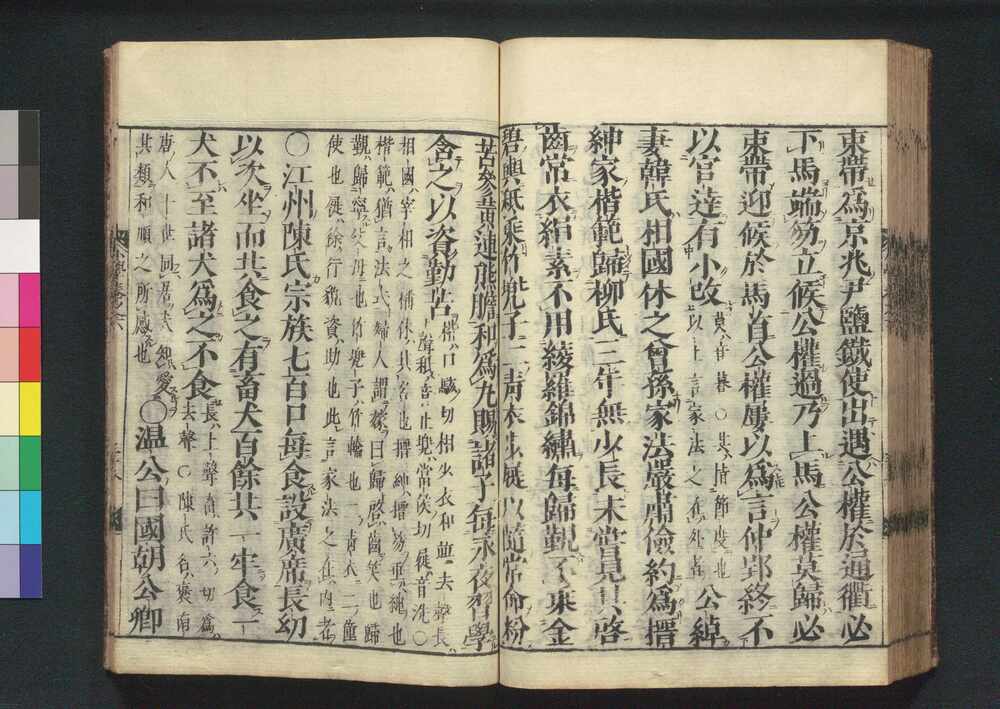 束帶爲京兆尹鹽鐵使出遇公權於通衢必
下馬端笏立候公權過乃上馬公權莫歸必
束帶迎候於馬首公權屢以爲言仲郢終不
以官達有小改莫音暮○其指節度也以上言家法之在外者公綽
妻韓氏相國休之曾孫家法嚴肅儉約爲搢
紳家楷範歸柳氏三年無少長未嘗見其啓
齒常衣絹素不用綾羅錦繡每歸覲不乘金
碧輿祗乘竹兜子二青衣步屣以隨常命粉
苦參黃連熊膽和爲丸賜諸子每永夜習學
含之以資勤苦
相國宰相之稱休其名也搢紳搢笏垂紳也
楷範猶言法式婦人謂嫁曰歸啓齒笑也歸
覲歸寧父母也竹兜子竹轎也二青衣二僮
使也屣徐行貌資助也此言家法之在内者
○江州陳氏宗族七百口每食設廣席長幼
以次坐而共食之有畜犬百餘共一牢食一
犬不至諸犬爲之不食長上聲畜許六切爲去聲○陳氏名褒南
唐人十世同居
其類和順之所感也○温公曰國朝公卿